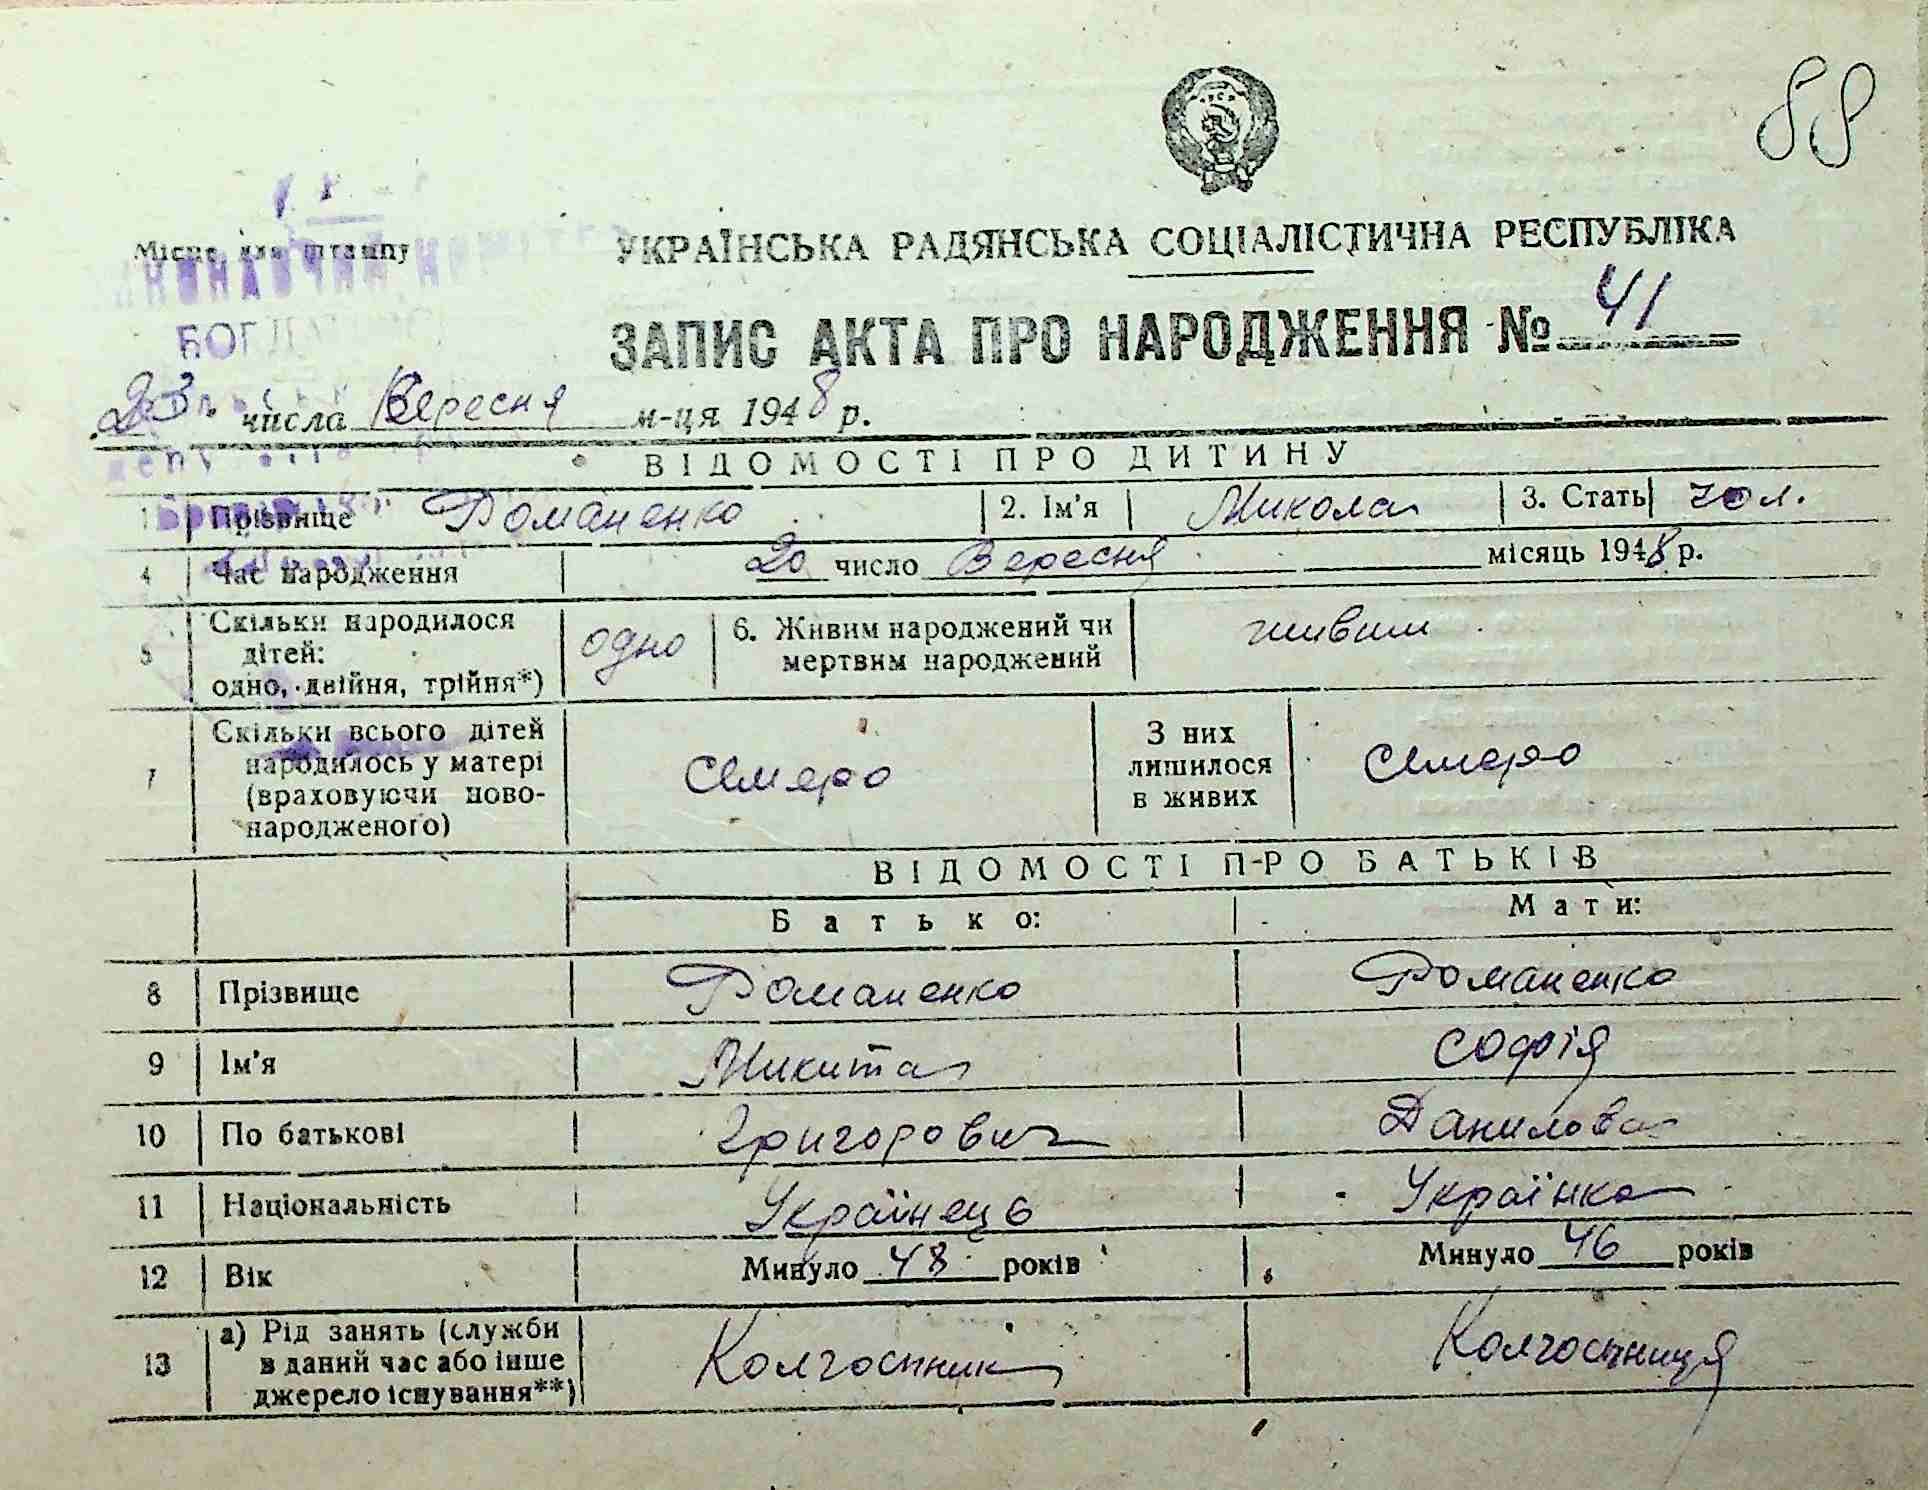 88
Місце для штампу
УКРАЇНСЬКА РАДЯНСЬКА СОЦІАЛІСТИЧНА РЕСПУБЛІКА
ЗАПИС АКТА ПРО НАРОДЖЕННЯ № 41
23 числа Вересня м-ця 1948 р.
ВІДОМОСТІ ПРО ДИТИНУ
1 Прізвище Романенко 2. Ім'я Микола 3. Стать чол.
4 Час народження 20 число Вересня місяць 1948 р.
5 Скільки народилося дітей: одно, двійня, трійня*) одно 6. Живим народжений чи мертвим народжений живим
7 Скільки всього дітей народилось у матері (враховуючи ново-народженого) семеро З них лишилося в живих семеро
ВІДОМОСТІ ПРО БАТЬКІВ
Батько: Мати:
8 Прізвище Романенко Романенко
9 Ім'я Микита Софія
10 По батькові Григорович Данилова
11 Національність Українець Українка
12 Вік Минуло 48 років Минуло 46 років
13 а) Рід занять (служби в даний час або інше джерело існування**) Колгоспник Колгоспниця